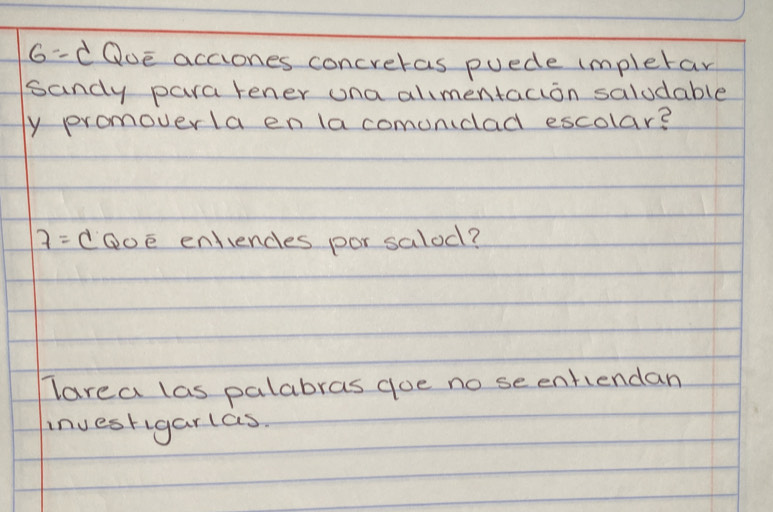 6=¿Qué acciones concretas puede impletar
Sandy para tener una alimentación saludable
y promoverla en la comunidad escolar?
7=¿Qué entiendes por salud?
Tarea las palabras que no se entiendan
investigarlas.